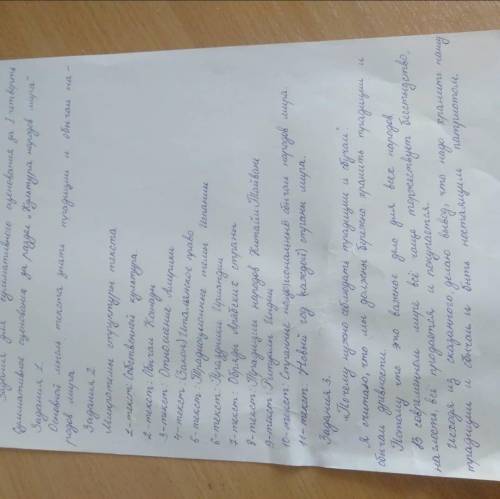 Задания для суммативного оценивания за 1 четверть
Суммативное оценивание за раздел „Культура народов мира"
Задания 1.
Основной мысль текста знать традиции и обычаи на-
родов мира
Задания 2
Микротемы структуры текста
1-текст: Собственной культура.
2-текст: Обычаи Канады
3-текст: Отношение Америки
4-текст: (Закон) Итальянское право
5-текст: Традиционные танцы Испании
6-текст: Праздники Ирландии
7-текст: Обряды арабских страны
8-текст: Традиции народов Китай и Тайвань
9-текст: Ритуалы Индии
10-текст: Странные национальные обычаи народов мира.
11-текст: Новый год (каждой) страны мира.
Задания 3.
„Почему нужно соблюдать традиции и обычаи"
Я считаю, что мы должны бережно хранить традиции и
обычаи древности.
Потому что это важное дело для всех народов
В современном мире всё чаще торжествует бесстыдство,
наглость, всё продается и покупается.
Исходя из сказанного, делаю вывод, что надо хранить нашу
традиции и обычаи и быть настоящим патриотом.